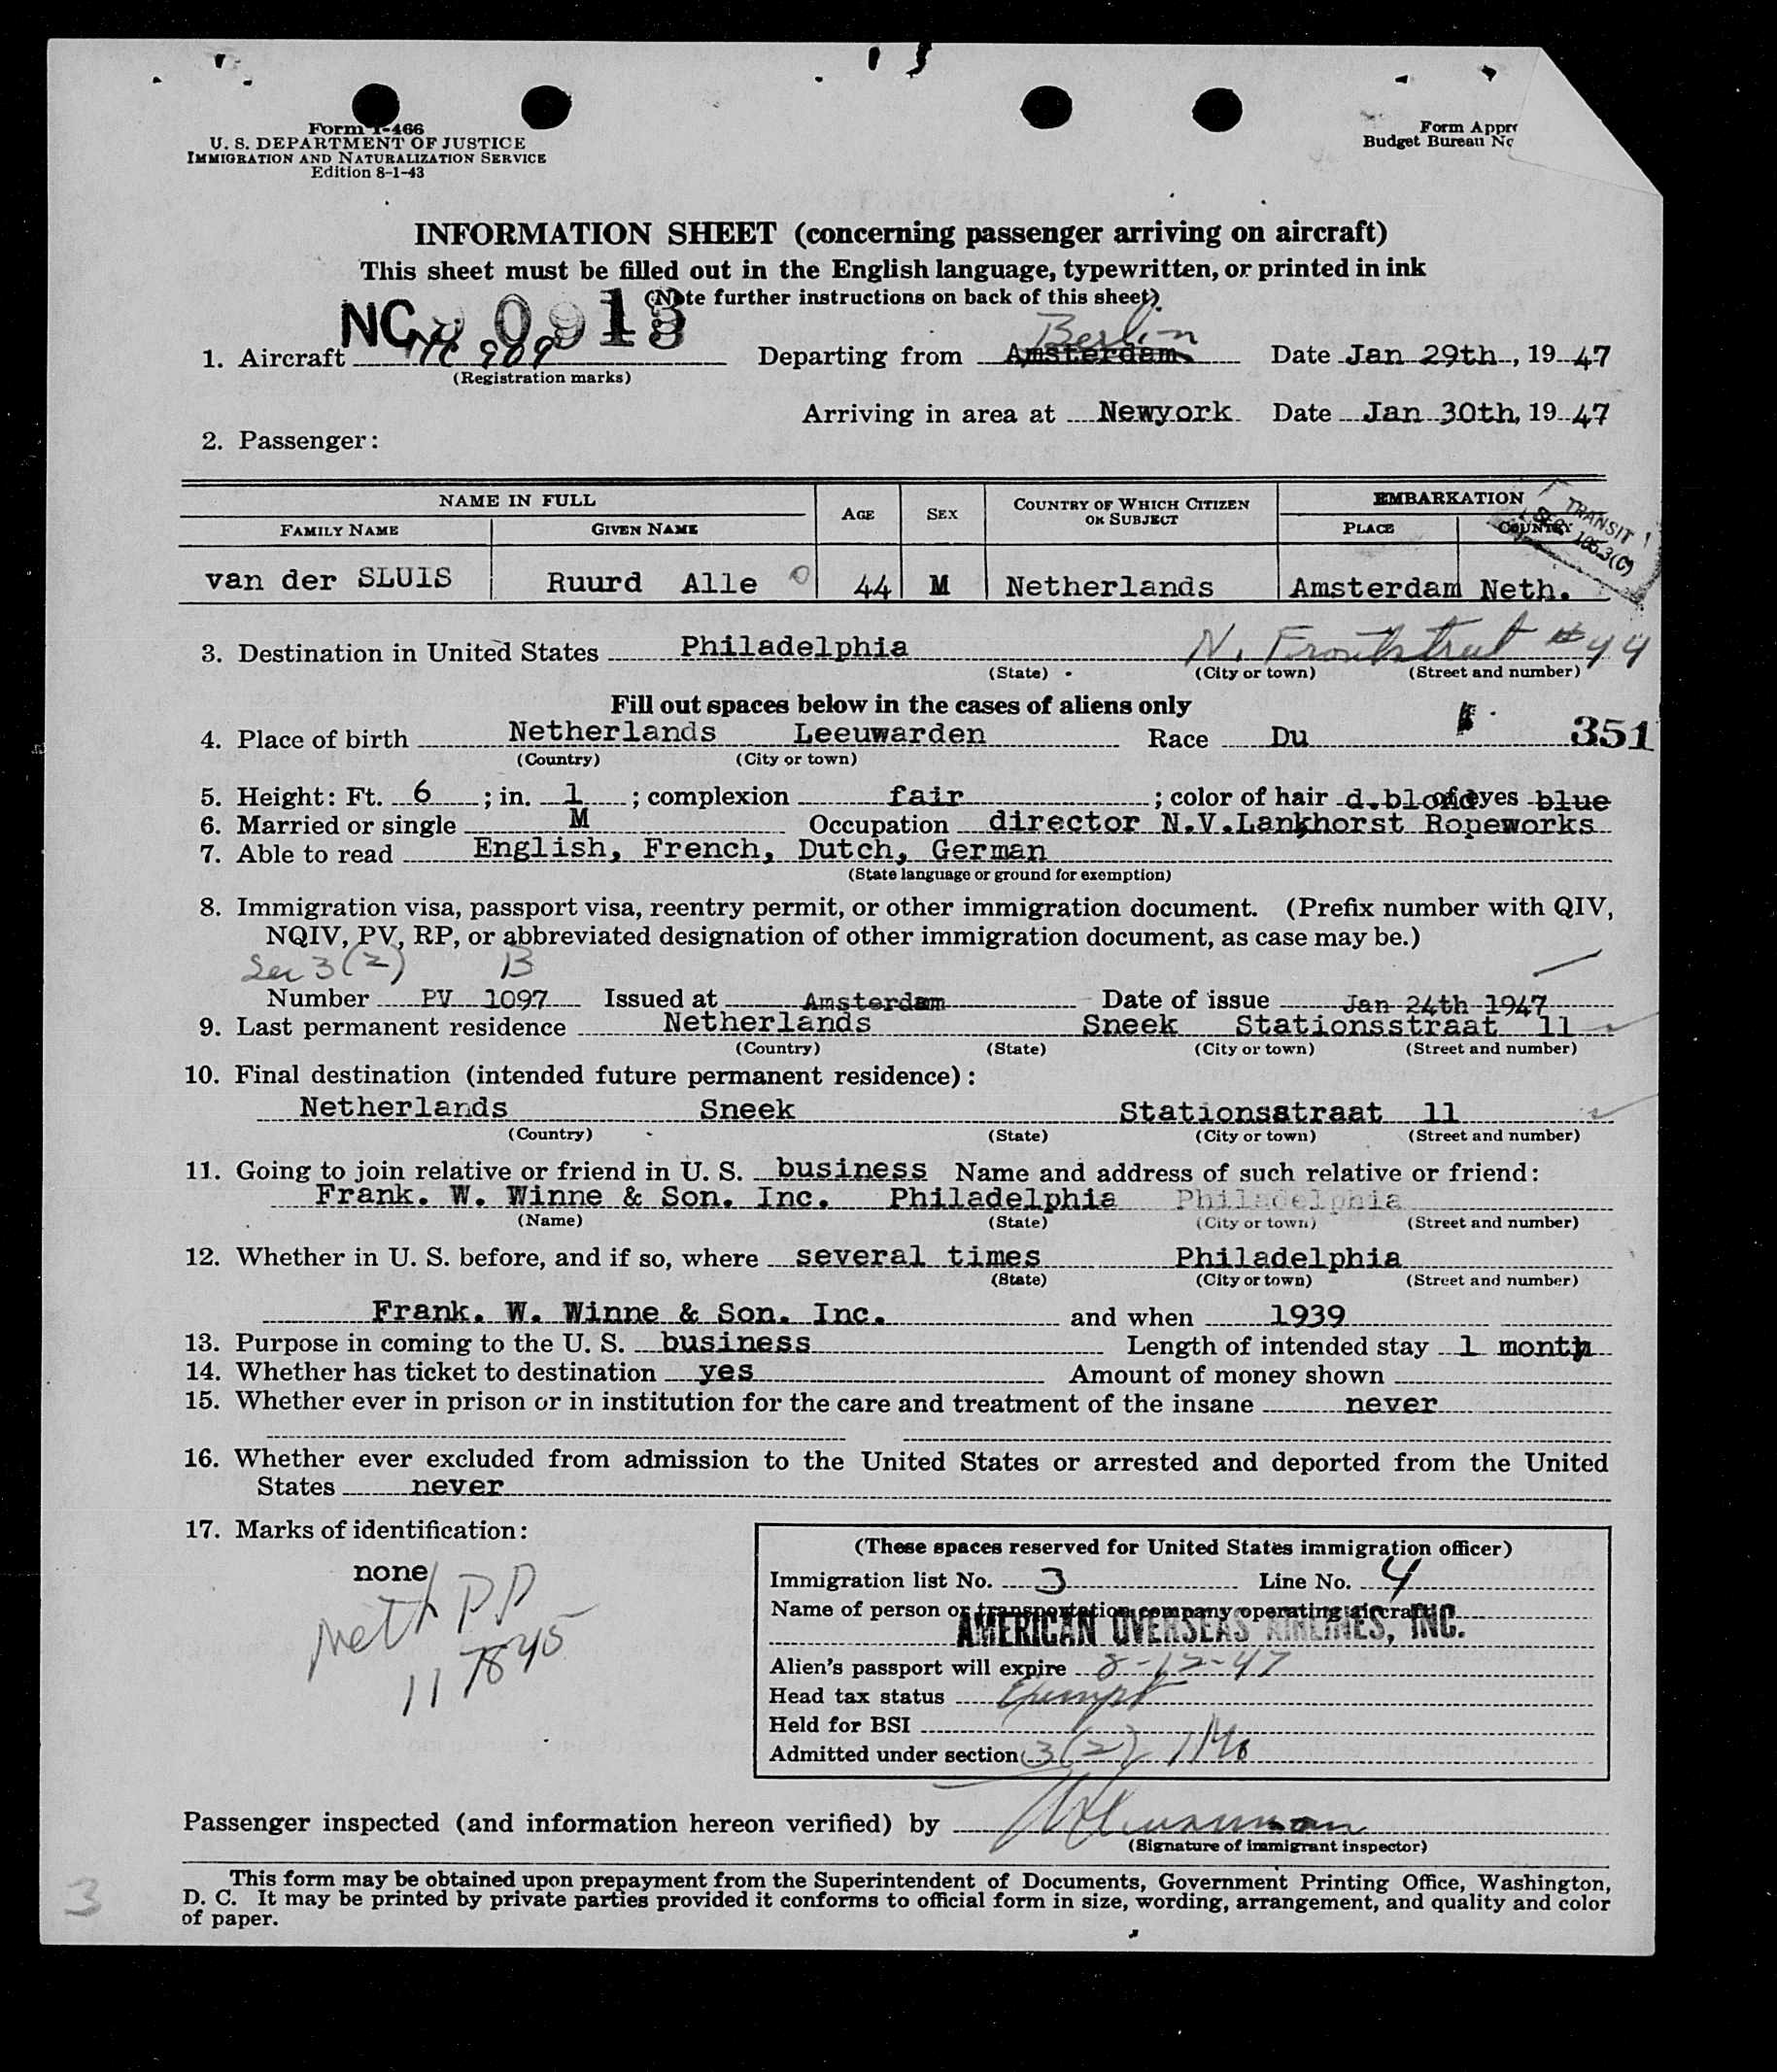 Form I-466
U. S. DEPARTMENT OF JUSTICE
IMMIGRATION AND NATURALIZATION SERVICE
Edition 8-1-43
Form Appr
Budget Bureau No
INFORMATION SHEET (concerning passenger arriving on aircraft)
This sheet must be filled out in the English language, typewritten, or printed in ink
(Note further instructions on back of this sheet)
1. Aircraft NC 909 Departing from Amsterdam Berlin Date Jan 29th, 19 47
(Registration marks)
Arriving in area at Newyork Date Jan 30th, 19 47
2. Passenger:
NAME IN FULL AGE SEX COUNTRY OF WHICH CITIZEN OR SUBJECT EMBARKATION
FAMILY NAME GIVEN NAME PLACE COUNTRY
TRANSIT
SEC. 105.3(C)
van der SLUIS Ruurd Alle 44 M Netherlands Amsterdam Neth.
3. Destination in United States Philadelphia N. Frontstreet #44
(State) (City or town) (Street and number)
Fill out spaces below in the cases of aliens only
4. Place of birth Netherlands Leeuwarden Race Du 351
(Country) (City or town)
5. Height: Ft. 6 ; in. 1 ; complexion fair ; color of hair d.blond of eyes blue
6. Married or single M Occupation director N.V.Lankhorst Ropeworks
7. Able to read English, French, Dutch, German
(State language or ground for exemption)
8. Immigration visa, passport visa, reentry permit, or other immigration document. (Prefix number with QIV,
NQIV, PV, RP, or abbreviated designation of other immigration document, as case may be.)
Sec 3(2) B
Number PV 1097 Issued at Amsterdam Date of issue Jan 24th 1947
9. Last permanent residence Netherlands Sneek Stationsstraat 11
(Country) (State) (City or town) (Street and number)
10. Final destination (intended future permanent residence):
Netherlands Sneek Stationsstraat 11
(Country) (State) (City or town) (Street and number)
11. Going to join relative or friend in U. S. business Name and address of such relative or friend:
Frank. W. Winne & Son. Inc. Philadelphia Philadelphia
(Name) (State) (City or town) (Street and number)
12. Whether in U. S. before, and if so, where several times Philadelphia
(State) (City or town) (Street and number)
Frank. W. Winne & Son. Inc. and when 1939
13. Purpose in coming to the U. S. business Length of intended stay 1 month
14. Whether has ticket to destination yes Amount of money shown
15. Whether ever in prison or in institution for the care and treatment of the insane never
16. Whether ever excluded from admission to the United States or arrested and deported from the United
States never
17. Marks of identification:
none
Neth PP
117845
(These spaces reserved for United States immigration officer)
Immigration list No. 3 Line No. 4
Name of person or transportation company operating aircraft
AMERICAN OVERSEAS AIRLINES, INC.
Alien's passport will expire 8-12-47
Head tax status Exempt
Held for BSI
Admitted under section 3(2)
Passenger inspected (and information hereon verified) by
(Signature of immigrant inspector)
This form may be obtained upon prepayment from the Superintendent of Documents, Government Printing Office, Washington,
D. C. It may be printed by private parties provided it conforms to official form in size, wording, arrangement, and quality and color
of paper.
3